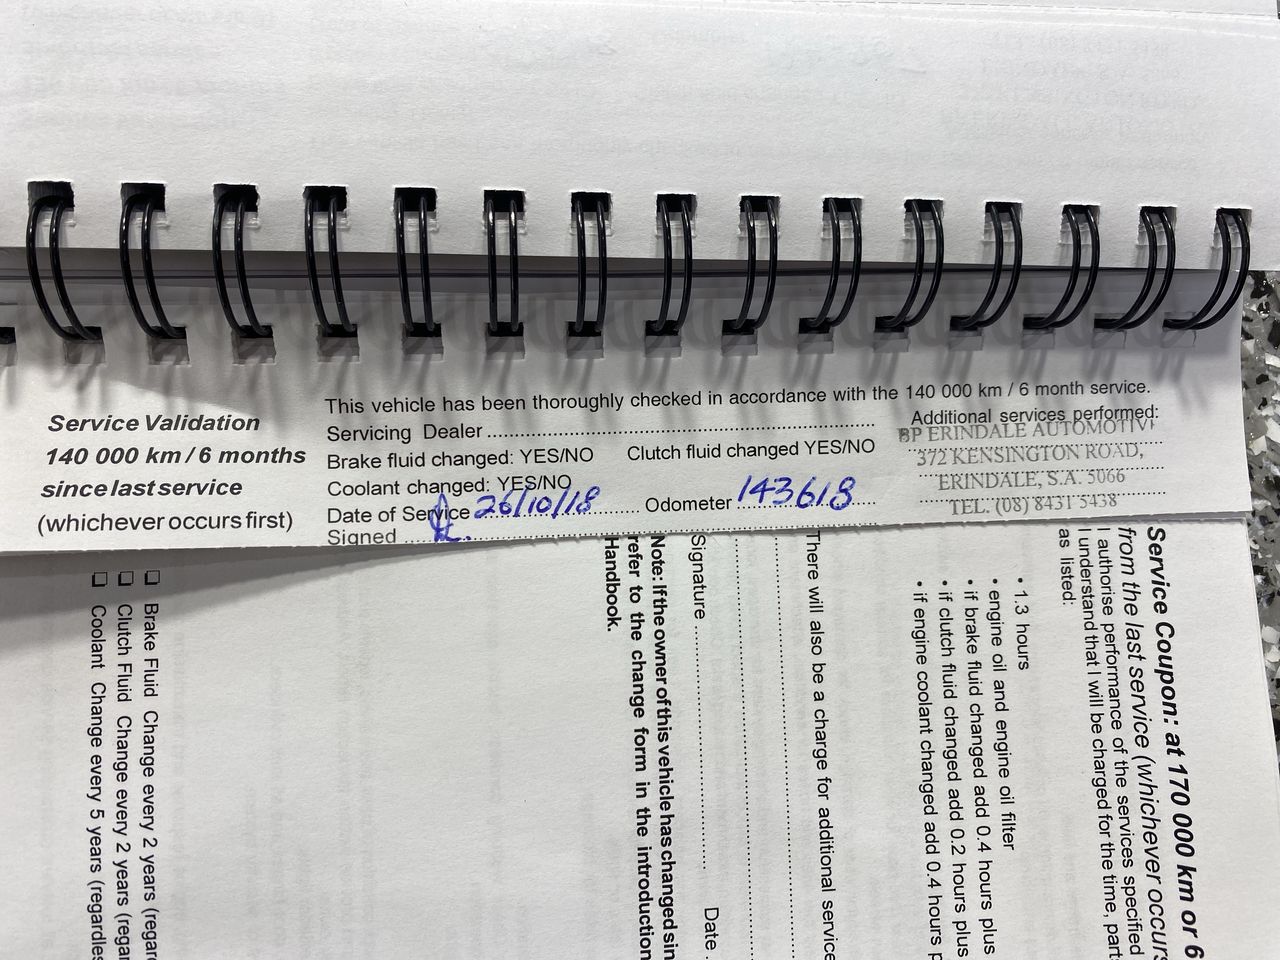 Service Validation
140 000 km / 6 months
since last service
(whichever occurs first)
This vehicle has been thoroughly checked in accordance with the 140 000 km / 6 month service.
Servicing Dealer
Brake fluid changed: YES/NO Clutch fluid changed YES/NO
Coolant changed: YES/NO
Date of Service 26/10/18 Odometer 143618
Signed
Additional services performed:
BP ERINDALE AUTOMOTIVE
372 KENSINGTON ROAD,
ERINDALE, S.A. 5066
TEL. (08) 8431 5438
Service Coupon: at 170 000 km or 6
from the last service (whichever occurs
I authorise performance of the services specified
I understand that I will be charged for the time, part
as listed:
• 1.3 hours
• engine oil and engine oil filter
• if brake fluid changed add 0.4 hours plus
• if clutch fluid changed add 0.2 hours plus
• if engine coolant changed add 0.4 hours p
There will also be a charge for additional service
Signature Date
Note: If the owner of this vehicle has changed sin
refer to the change form in the introduction
Handbook.
❑ Brake Fluid Change every 2 years (regar
❑ Clutch Fluid Change every 2 years (regar
❑ Coolant Change every 5 years (regardles